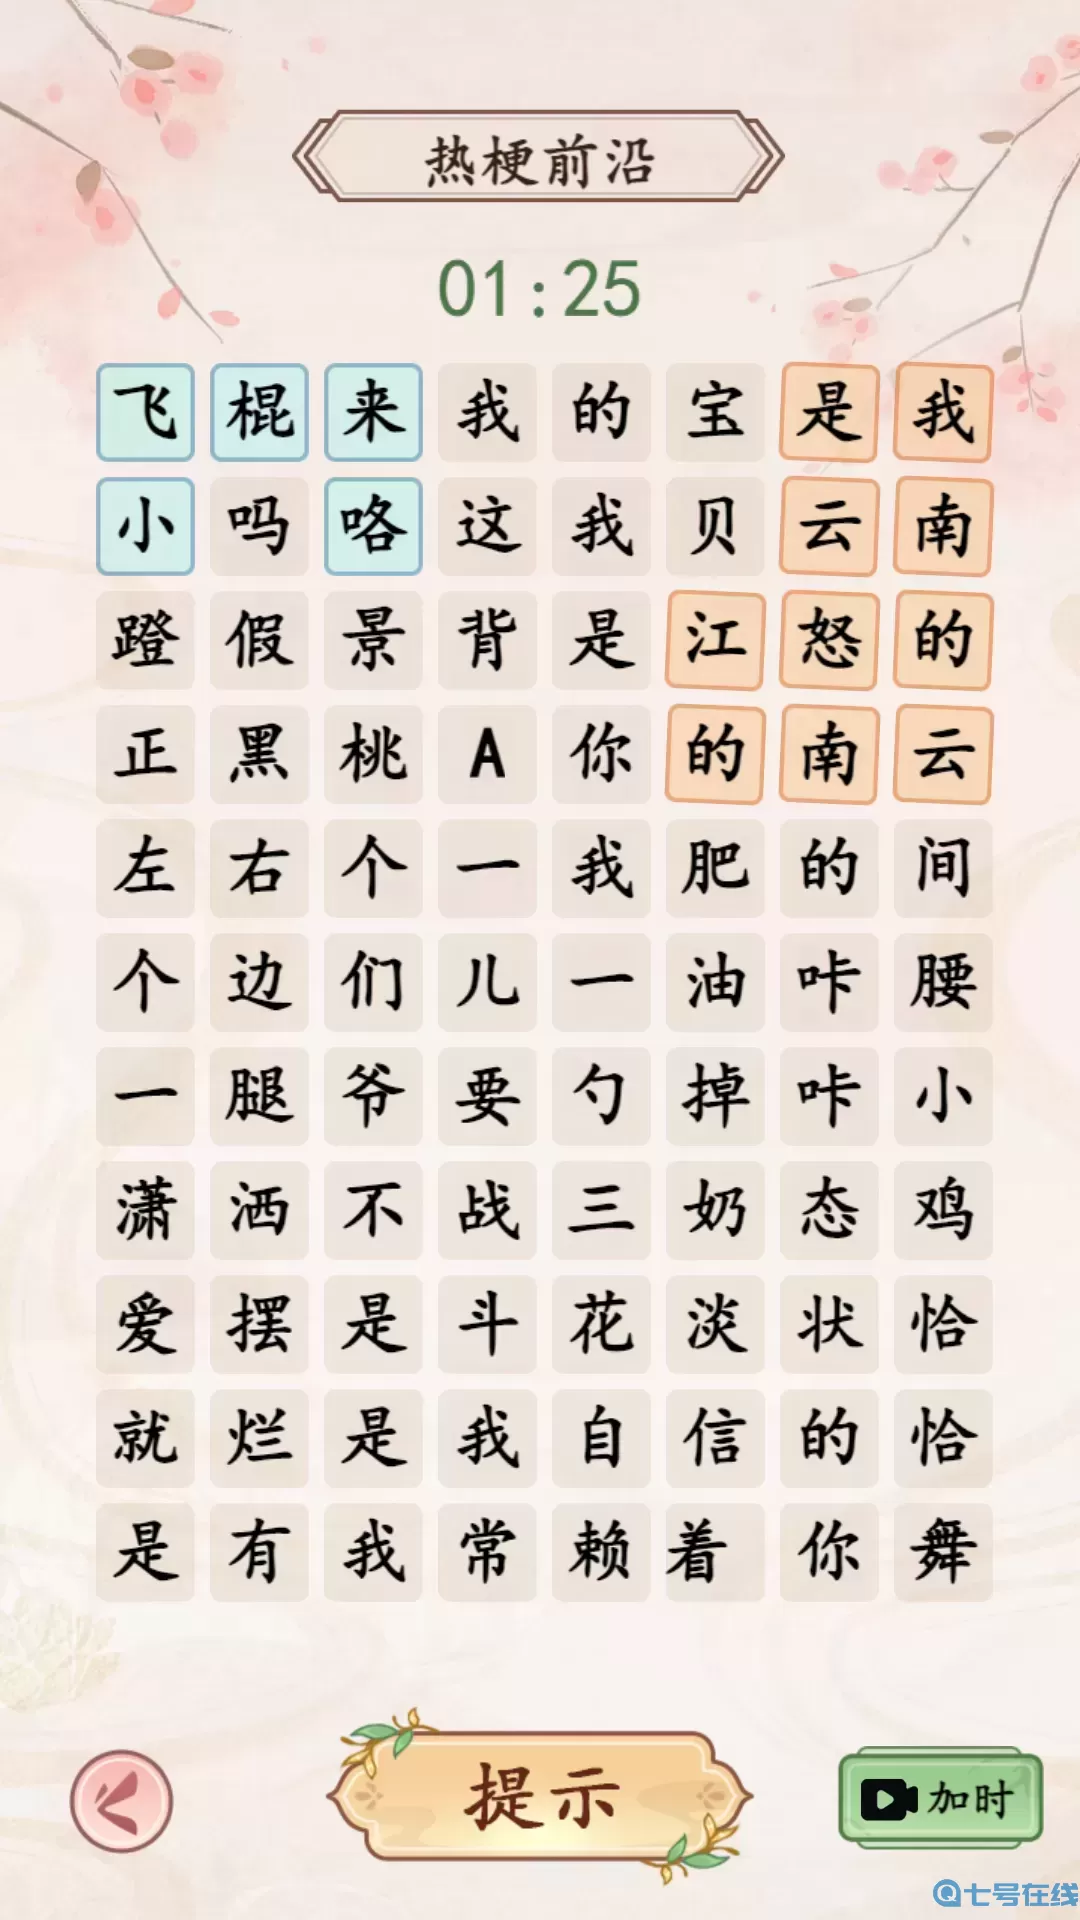 热梗前沿
01:25
飞棍来我的宝是我
小吗咯这我贝云南
蹬假景背是江怒的
正黑桃A你的南云
左右个一我肥的间
个边们儿一油咔腰
一腿爷要勺掉咔小
潇洒不战三奶态鸡
爱摆是斗花淡状恰
就烂是我自信的恰
是有我常赖着你舞
提示
加时
七号在线